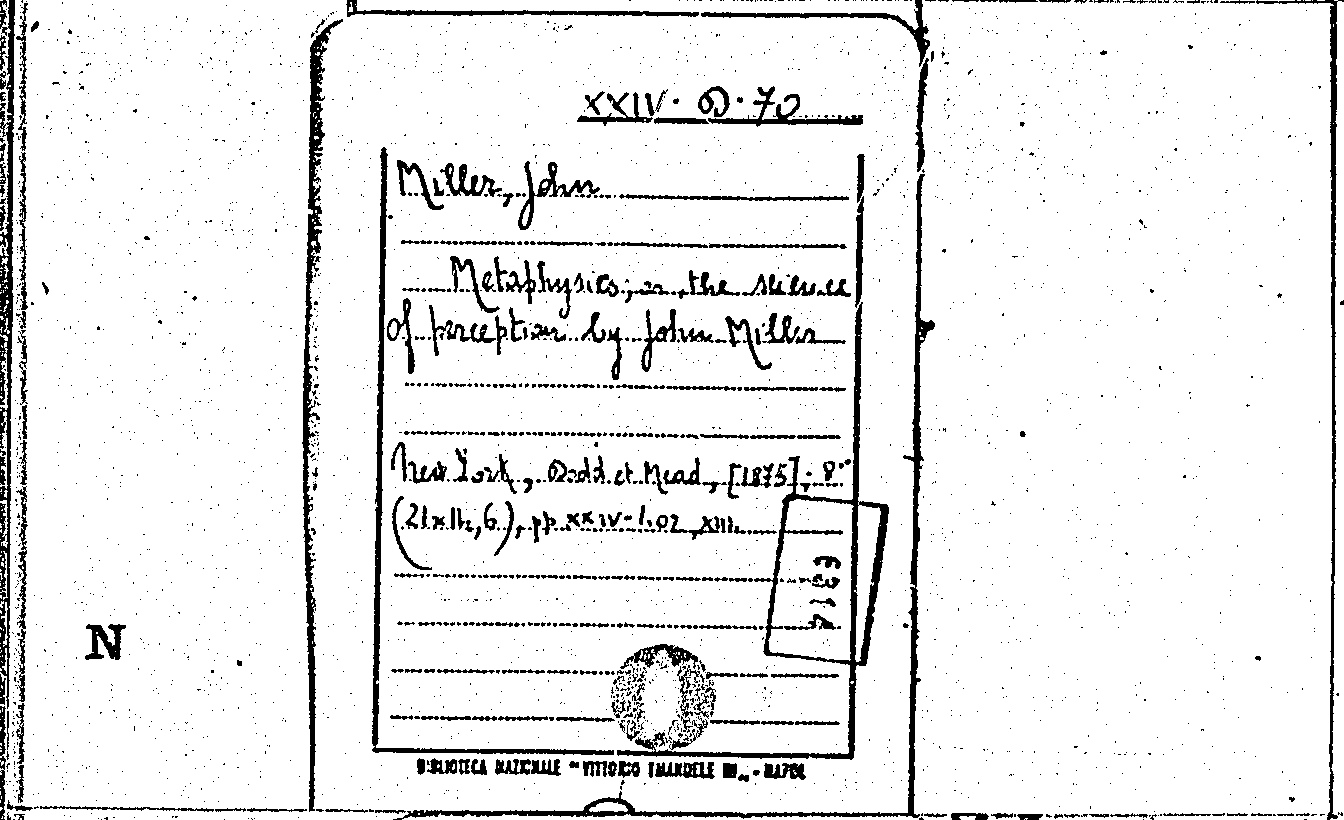 XXIV. D. 70
Miller, John
Metaphysics; or the science
of perception by John Miller
New York, Dodd et Mead, [1875]; 8°
(21x14,6), pp. XXIV-402, XIII.
6314
N
BIBLIOTECA NAZIONALE "VITTORIO EMANUELE III" - NAPOLI